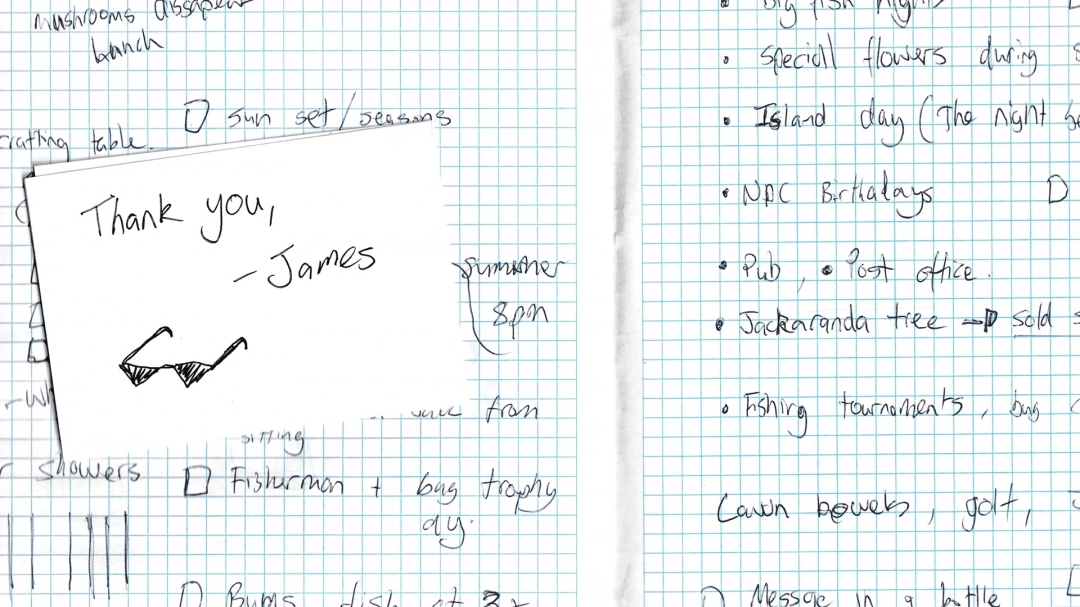 mushrooms
bunch
sun set/seasons
crafting table.
Thank you,
- James
Summer
8pm
from
sitting
showers
Fisherman + bug trophy
day.
Big fish nights
Speciall flowers during
Island day (The night
NPC Birthadays
Pub, • Post office.
Jackaranda tree → sold
Fishing tournaments, bug
Lawn bowels, golf,
Message in a bottle